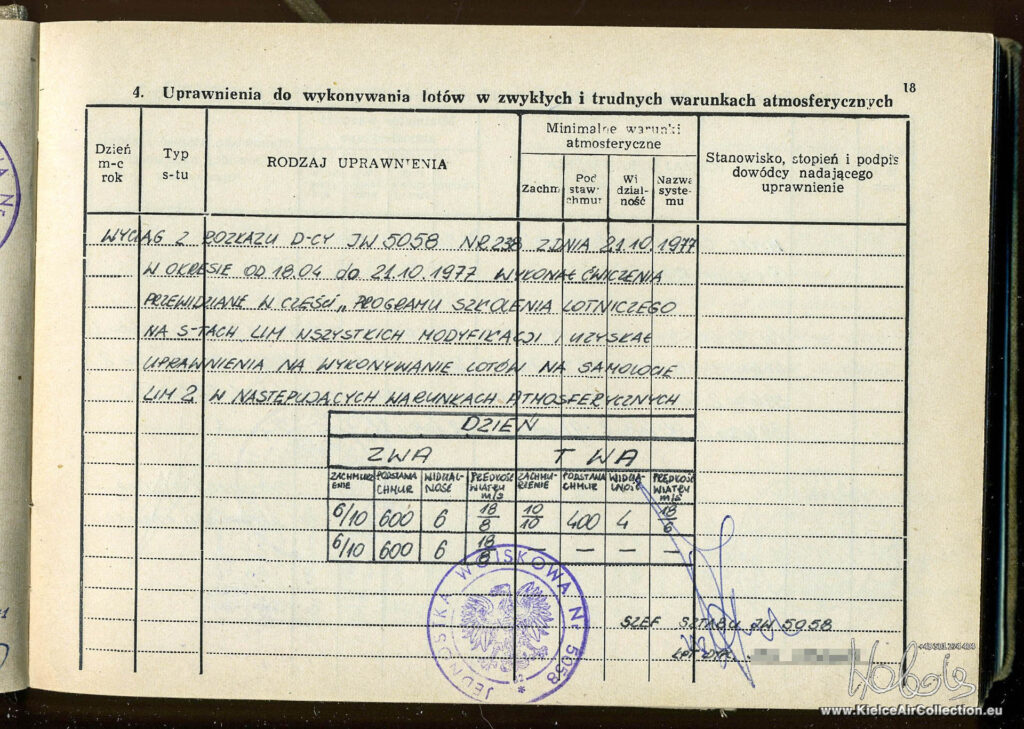 18
4. Uprawnienia do wykonywania lotów w zwykłych i trudnych warunkach atmosferycznych
Dzień m-c rok
Typ s-tu
RODZAJ UPRAWNIENIA
Minimalne warunki atmosferyczne
Zachm
Pod staw chmur
Wi dzial- ność
Nazwa syste- mu
Stanowisko, stopień i podpis dowódcy nadającego uprawnienie
WYCIĄG Z ROZKAZU D-CY JW 5058 NR 238 Z DNIA 21.10.1977
W OKRESIE OD 18.04 do 21.10.1977 WYKONAŁ ĆWICZENIA
PRZEWIDZIANE W CZĘŚCI „PROGRAMU SZKOLENIA LOTNICZEGO
NA S-TACH LIM WSZYSTKICH MODYFIKACJI I UZYSKAŁ
UPRAWNIENIA NA WYKONYWANIE LOTÓW NA SAMOLOCIE
LIM 2 W NASTĘPUJĄCYCH WARUNKACH ATMOSFERYCZNYCH
DZIEŃ
ZWA TWA
ZACHMURZENIE PODSTAWA CHMUR WIDZIALNOŚĆ PRĘDKOŚĆ WIATRU m/s ZACHMURZENIE PODSTAWA CHMUR WIDZIALNOŚĆ PRĘDKOŚĆ WIATRU m/s
6/10 600 6 18/8 10/10 400 4 18/6
6/10 600 6 18/8 — — — —
JEDNOSTKA WOJSKOWA Nr 5058
SZEF SZTABU JW 5058
www.KielceAirCollection.eu